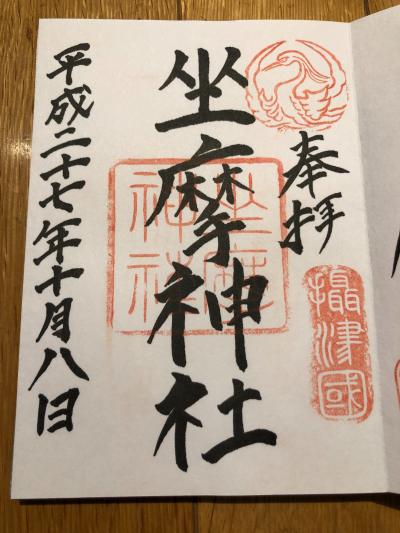 奉拝
攝津國
坐摩神社
坐摩
神社
平成二十七年十月八日